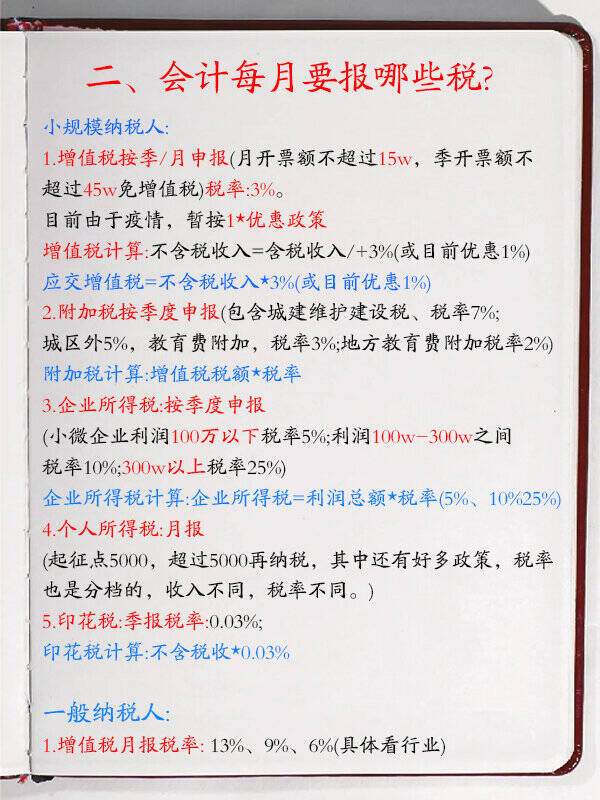 二、会计每月要报哪些税?
小规模纳税人:
1.增值税按季/月申报(月开票额不超过15w，季开票额不
超过45w免增值税)税率:3%。
目前由于疫情，暂按1*优惠政策
增值税计算:不含税收入=含税收入/+3%(或目前优惠1%)
应交增值税=不含税收入*3%(或目前优惠1%)
2.附加税按季度申报(包含城建维护建设税、税率7%;
城区外5%，教育费附加，税率3%;地方教育费附加税率2%)
附加税计算:增值税税额*税率
3.企业所得税:按季度申报
(小微企业利润100万以下税率5%;利润100w-300w之间
税率10%;300w以上税率25%)
企业所得税计算:企业所得税=利润总额*税率(5%、10%25%)
4.个人所得税:月报
(起征点5000，超过5000再纳税，其中还有好多政策，税率
也是分档的，收入不同，税率不同。)
5.印花税:季报税率:0.03%;
印花税计算:不含税收*0.03%
一般纳税人:
1.增值税月报税率: 13%、9%、6%(具体看行业)